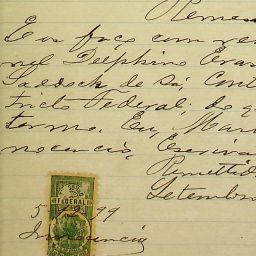 Remes
E os faço com re
nel Delphino Eras
Saddock de Sá, Cont
tricto Federal; do q
termo. Eu, Man
nocencio, Escriva
Remettid
Setembro
FEDERAL
5 99
Innocencio